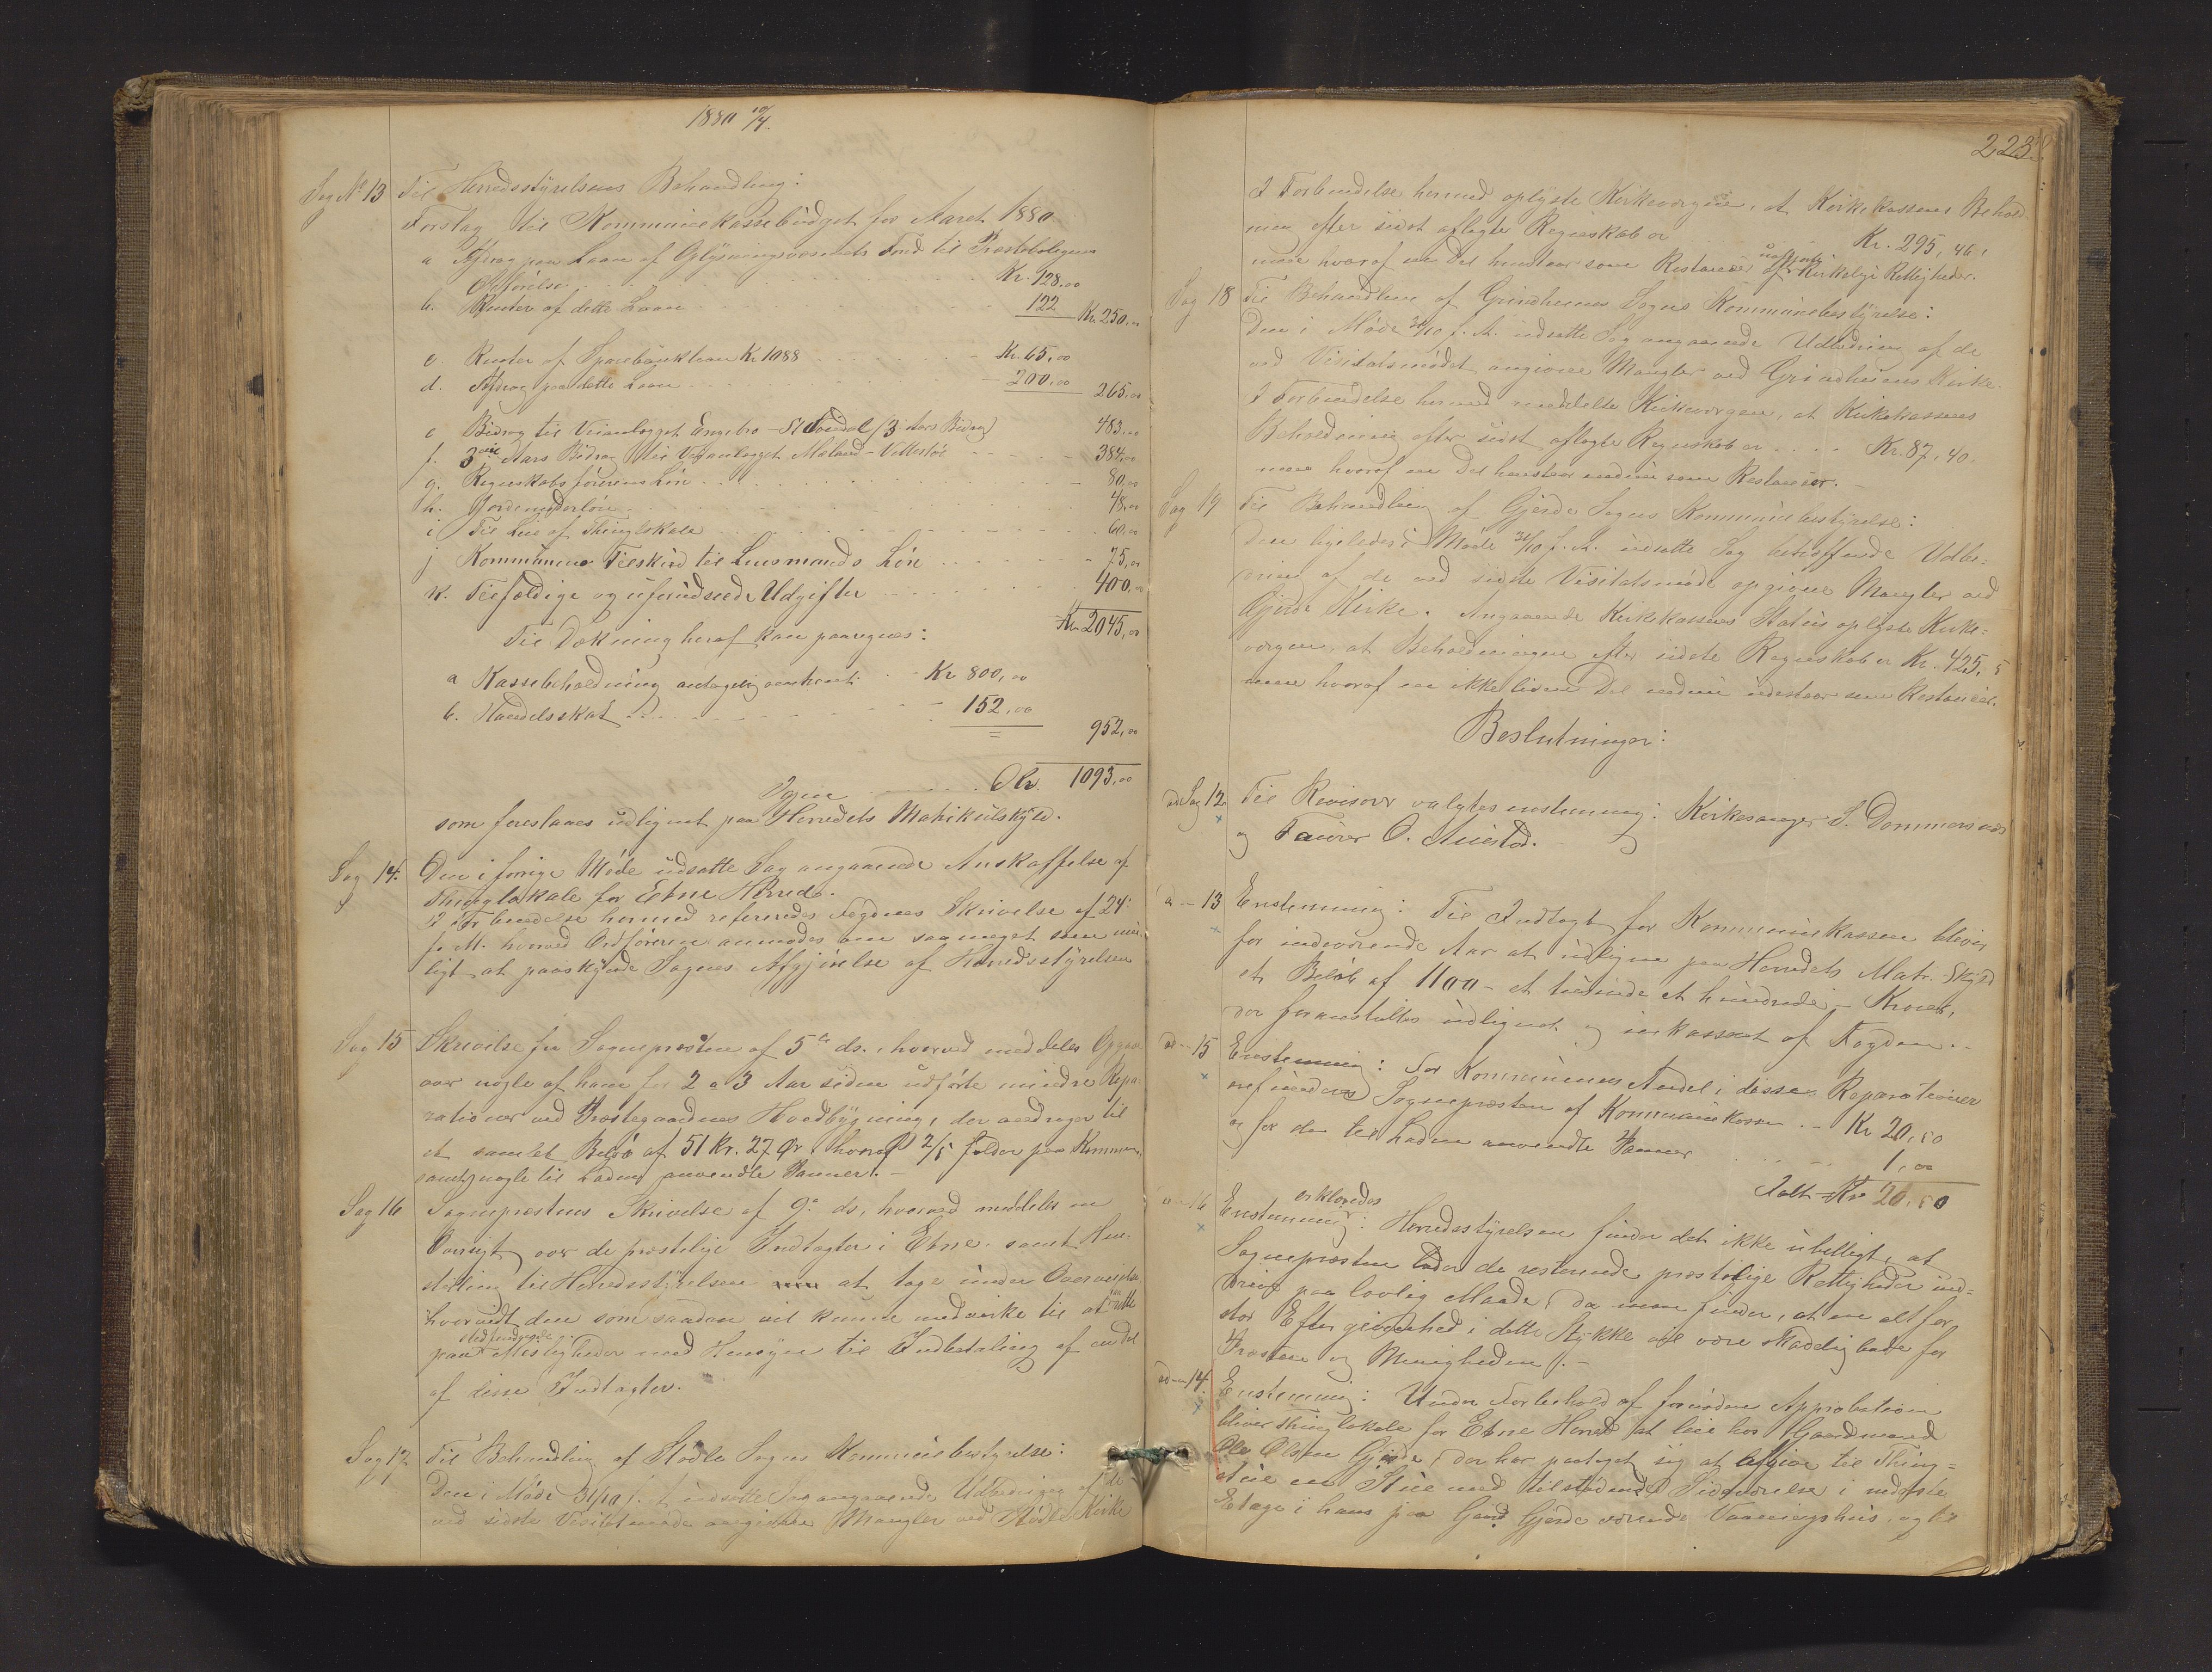 1880 10/4.
Sag No 13 Til Herredsstyrelsens Behandling:
Forslag til Kommunekassebudget for Aaret 1880
a Afdrag paa Laan af Oplysningsvæsenets Fond til Præsteboligens
Opførelse Kr. 128.00
b. Renter af dette Laan 122 Kr 250.00
c. Renter af Sparebanklaan Kr. 1088 Kr. 65,00
d. Afdrag paa dette Laan 200,00 265,00
e Bidrag til Veianlægget (3 Aars Bidrag) 483,00
f. 3die Aars Bidrag til Veianlægget Maland - 384,00
g. Regnskabsførerens Løn 80,00
h. Jordemoderløn 48,00
i Til Leie af Thinglokale 60,00
j Kommunens Tilskud til Lensmands Løn 75,00
k. Tilfældige og uforudseede Udgifter 400,00
Kr 2045,00
Til Dækning heraf kan paaregnes:
a Kassebeholdning antagelig omtrent Kr 800,00
b. Handelsskat 152,00
952,00
Igjen Kr. 1093,00
som foreslaaes udlignet paa Herredets Matrikulskyld.
Sag 14. Den i forrige Møde udsatte Sag angaaende Anskaffelse af
Thinglokale for Etne Herred.
I Forbindelse hermed refereredes Fogdens Skrivelse af 24de
f. M. hvorved Ordføreren anmodes om saameget som mu-
ligt at paaskynde Sagens Afgjørelse af Herredsstyrelsen
Sag 15 Skrivelse fra Sognepræsten af 5te ds., hvorved meddeles Opgave
over nogle af ham for 2 a 3 Aar siden udførte mindre Repa-
rationer ved Præstegaardens Hovedbygning, der andrager til
et samlet Beløb af 51 Kr. 27 Ør hvoraf 2/5 falder paa Kommunen,
samt nogle til Laden anvendte Panner.-
Sag 16 Sognepræstens Skrivelse af 9de ds, hvorved meddeles en
Oversigt over de præstelige Indtægter i Etne samt Hen-
stilling til Herredsstyrelsen at tage under Overveielse
hvorvidt den som saadan vil kunne medvirke til at rette
paa stedfindende Misligheder med Hensyn til Indbetaling af endel
af disse Indtægter.
Sag 17 Til Behandling af Stødle Sogns Kommunebestyrelse:
Den i Møde 31/10 f. A. udsatte Sag angaaende Udbedringen af de
ved sidste Visitatsmøde angivne Mangler ved Stødle Kirke
223.
I Forbindelse hermed oplyste Kirkeværgen, at Kirkekassens Behold-
ning efter sidst aflagte Regnskab er Kr. 295,46,
men hvoraf en Del henstaar som Restancer af Kirkelige Rettigheder.
Sag 18 Til Behandling af Grindheims Sogns Kommunebestyrelse:
Den i Møde 31/10 f. A. udsatte Sag angaaende Udbedring af de
ved Visitatsmødet angivne Mangler ved Grindheims Kirke.
I Forbindelse hermed meddelte Kirkeværgen, at Kirkekassens
Beholdning efter sidst aflagte Regnskab er Kr. 87,40.
men hvoraf en Del henstaar endnu som Restancer.-
Sag 19 Til Behandling af Gjerde Sogns Kommunebestyrelse:
Den ligeledes i Møde 31/10 f. A. udsatte Sag betræffende Udbe-
dring af de ved sidste Visitatsmøde opgivne Mangler ved
Gjerde Kirke. Angaaende Kirkekassens Status oplyste Kirke-
værgen, at Beholdningen efter sidste Regnskab er Kr. 425,5
men hvoraf en ikke liden Del endnu udestaar som Restancer.
Beslutninger:
ad Sag 12 Til Revisorer valgtes enstemmig: Kirkesanger S. Dommersnes
og O. Austad.
a - 13 Enstemmig: Til Indtægt for Kommunekassen bliver
for indeværende Aar at udligne paa Herredets Matr. Skyld
et Beløb af 1100 - et tusinde et hundrede - Kroner,
der foranstaltes udlignet og inkasseret af Fogden.-
ad - 15 Enstemmig: For Kommunens Andel i disse Reparationer
refunderes Sognepræsten af Kommunekassen - Kr 20,50
og for de til Laden anvendte Panner 1,00
Ialt Kr
a - 16 Enstemmig erklæredes: Herredsstyrelsen finder det ikke ubilligt, at
Sognepræsten lader de resterende præstelige Rettigheder ind-
drive paa lovlig Maade, da man finder, at en alt for
stor Eftergivenhed i dette Stykke vil være skadelig baade for
Præsten og Menigheden.-
ad - 14. Enstemmig: Under Forbehold af fornøden Approbation
bliver Thinglokale for Etne Herred at leie hos Gaardmand
Ole Olsen Gjerde, der har paataget sig at afgive til Thing-
stue en Stue med tilstødende Sideværelse i nederste
Etage i hans paa Gaard Gjerde værende Vaaningshus, og